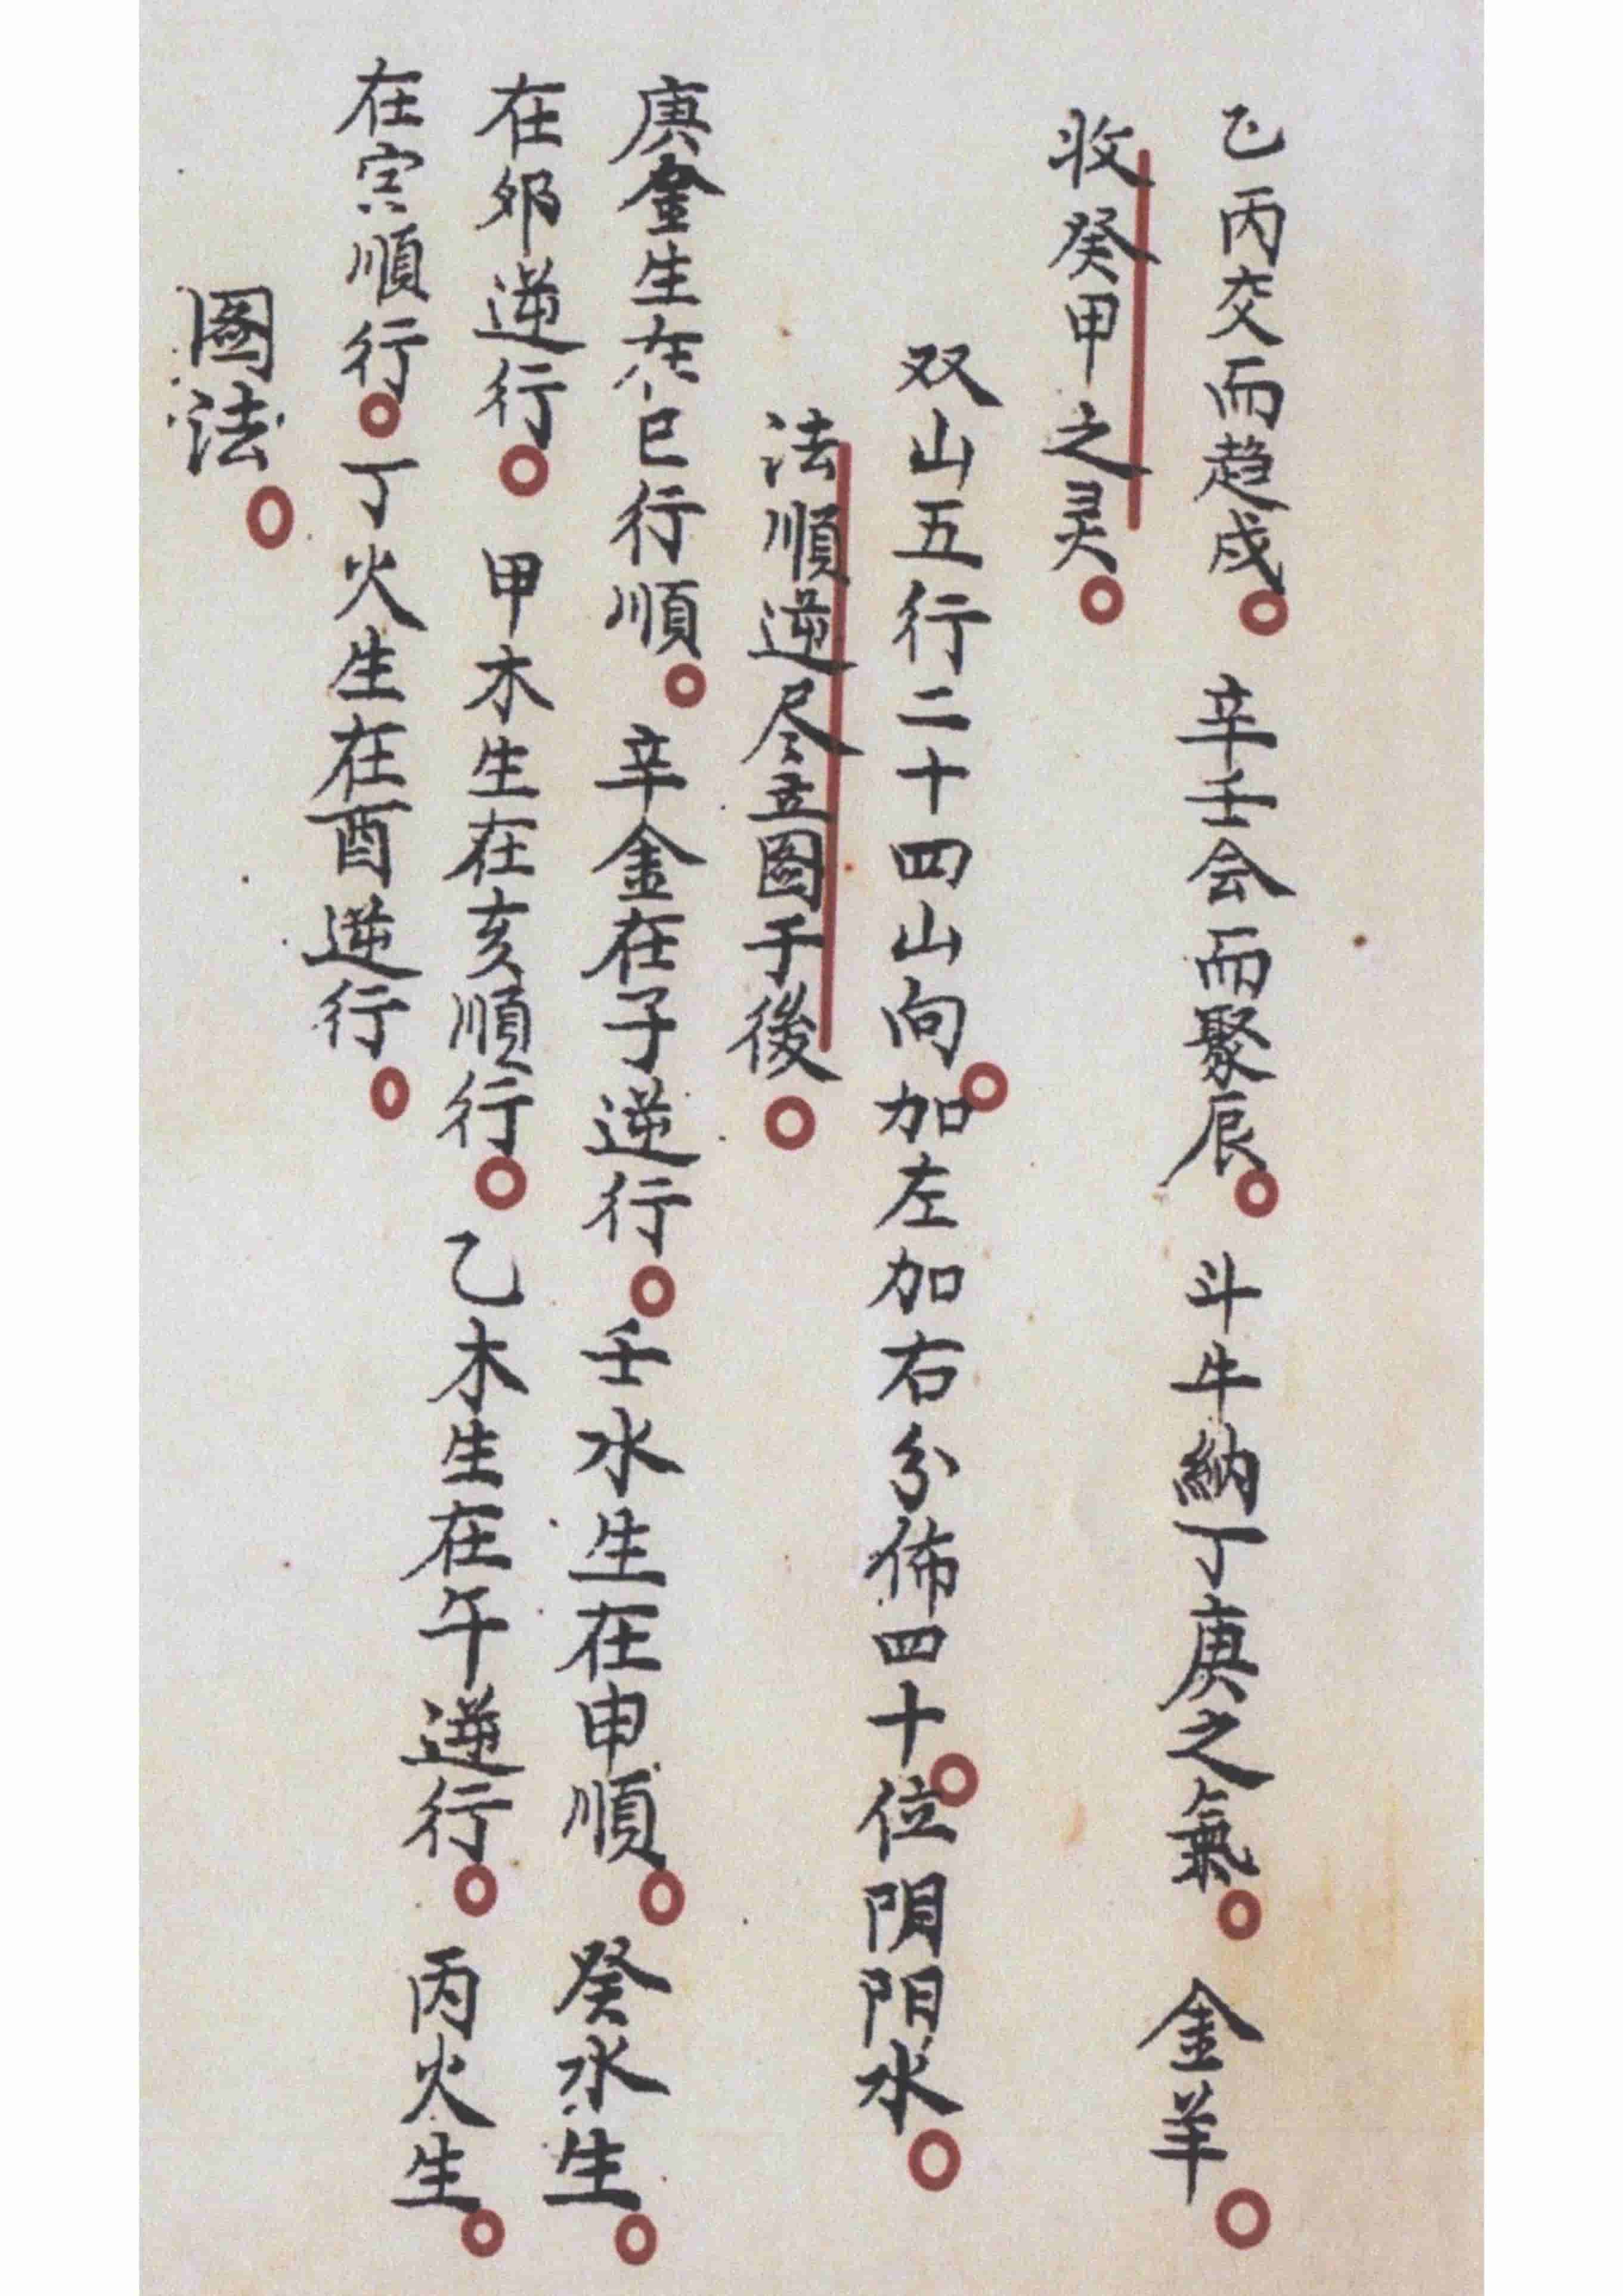 乙丙交而趋戌。辛壬会而聚辰。斗牛納丁庚之氣。金羊。
收癸甲之灵。
双山五行二十四山向。加左加右分佈四十。位阴阳水。
法順逆尽立图于後。
庚金生在巳行順。辛金在子逆行。壬水生在申順。癸水生。
在卯逆行。甲木生在亥順行。乙木生在午逆行。丙火生。
在寅順行。丁火生在酉逆行。
图法。